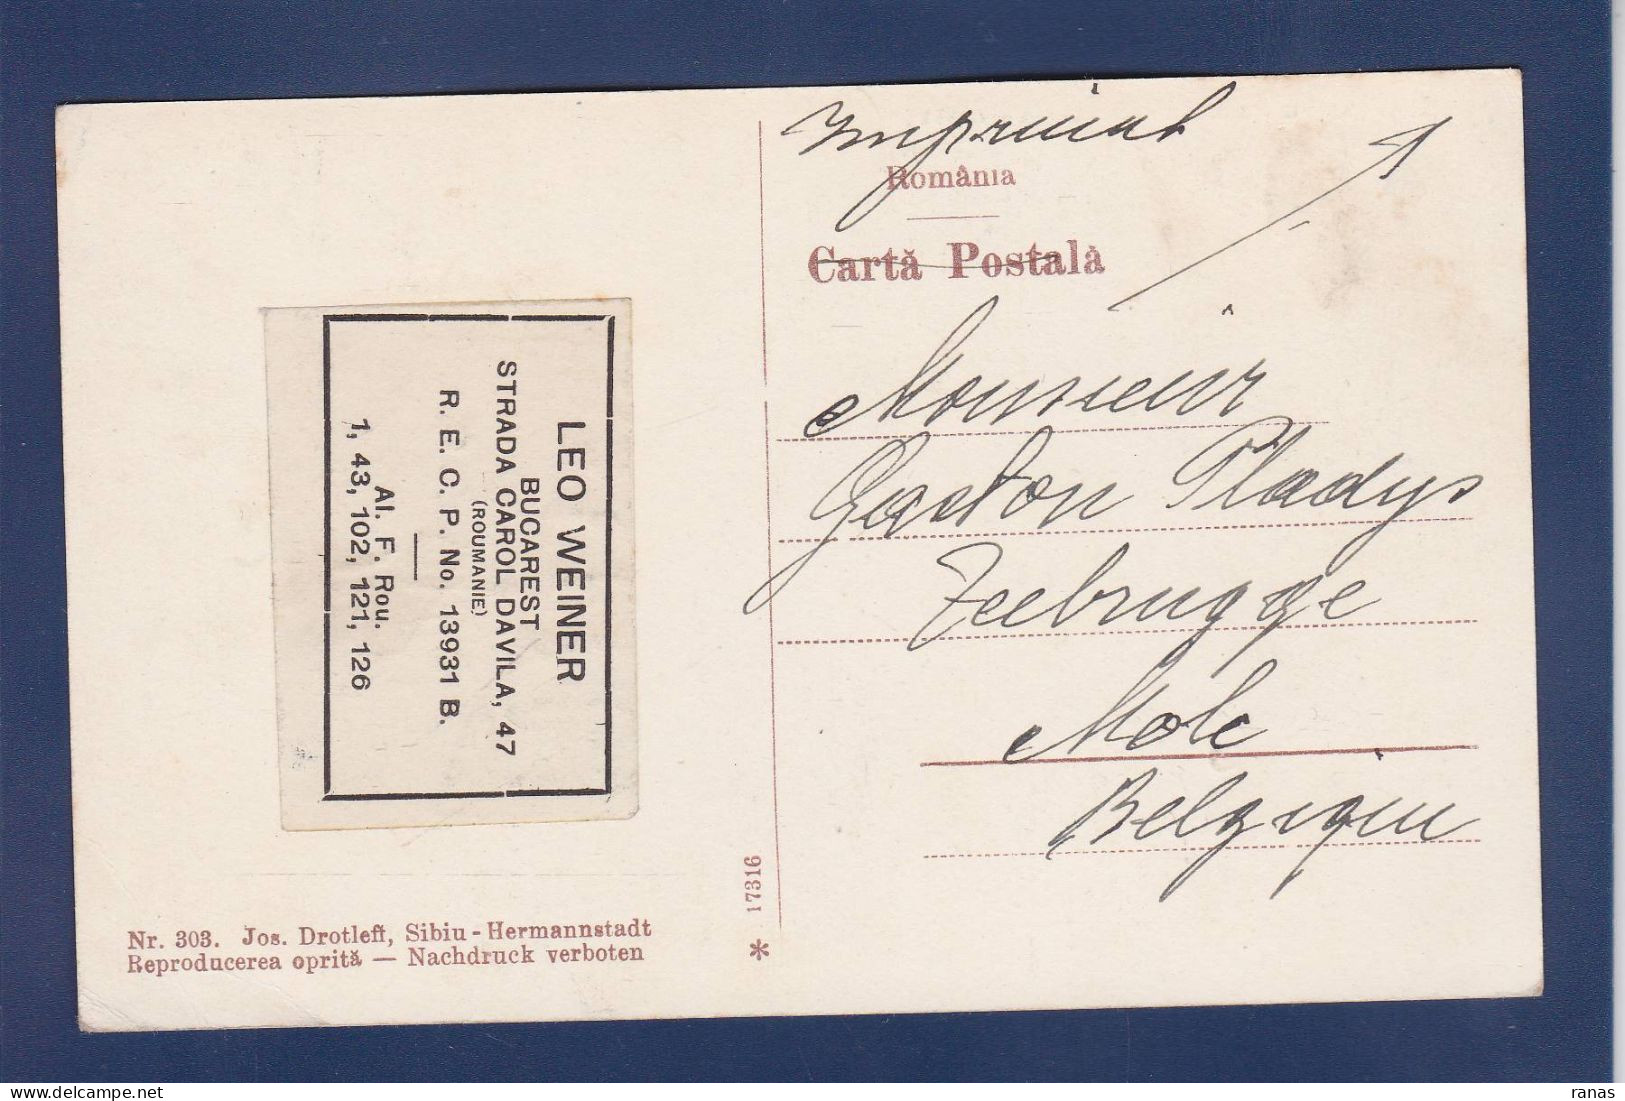 Imprimat
România
Cartă Postală
LEO WEINER
BUCAREST
STRADA CAROL DAVILA, 47
(ROUMANIE)
R. E. C. P. No. 13931 B.
Al. F. Rou.
1, 43, 102, 121, 126
Monsieur
Gaston Pladys
Zeebrugge
Mole
Belgique
17316
Nr. 303. Jos. Drotleff, Sibiu - Hermannstadt
Reproducerea oprită — Nachdruck verboten
*
ranas